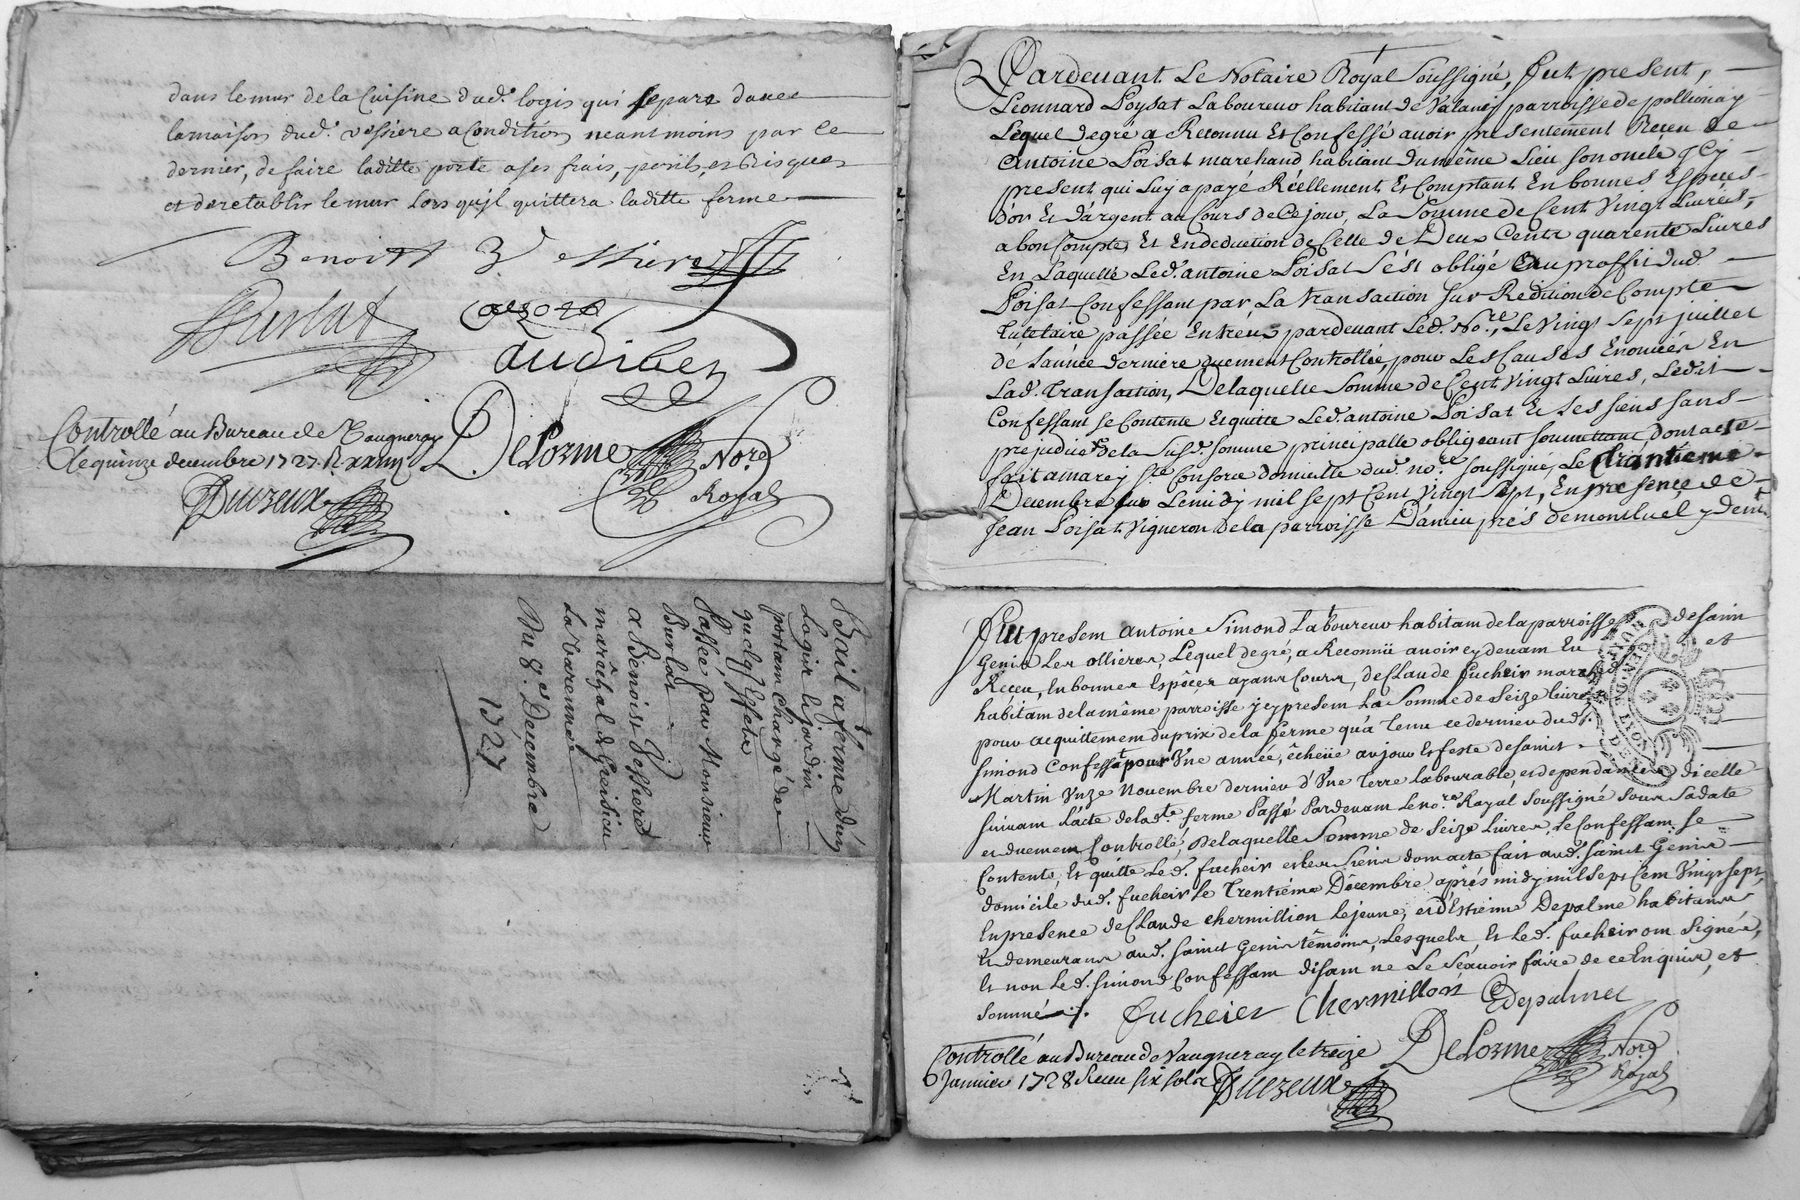 dans le mur de la Cuisine dud.t logis qui separe davec
la maison dud. vessiere a Condition neantmoins par ce
dernier, de faire laditte porte a ses frais, perils, et Risques
et de retablir le mur lors qu'jl quittera laditte ferme
Benoitt Vessiere
Burlat
audiber
Controllé au Bureau de Vaugneray
le quinze decembre 1727. R
DeLorme Nore
Royal
Duzeux
Bail a ferme d'un
Logis et jardin
portant Charge de
quelq. Effets
Passée par Monsieur
Burlat
a Benoist Vessiere
marêchal de Greisieu
La Varenne
Du 8.e Decembre
1727
Pardevant Le Notaire Royal soussigné, fut present,
Leonnard Poysat Laboureur habitant de Valancy parroisse de pollionay
Lequel degré a Reconnu Et Confessé avoir presentement Receu de
Antoine Poisat marchand habitant du même Lieu son oncle jcy
present qui Luy a payé Réellement Et Comptant En bonnes Espéces
d'or Et d'argent au Cours de Ce jour, La Somme de Cent Vingt Livres,
a bon Compte, Et En deduction de Celle de Deux Cents quarente Livres
En Laquelle Led. antoine Poisat s'est obligé au proffit dud.
Poisat Confessant par La transaction sur Redition de Compte
tutelaire passée Entr'eux pardevant Led. No.re, Le Vingt sept juillet
de L'année derniere duement Controllée, pour Les Causes Enoncées En
Lad. Transaction, De laquelle Somme de Cent Vingt Livres, Ledit
Confessant se Contente Et quitte Led. antoine Poisat Et Les siens sans
prejudice de la susd. somme principalle obligeant soumettant, dont acte
fait a marcy s.te Consorce domicille dud. no.re soussigné, Le trantieme
Decembre Lemidy mil sept Cent Vingt Sept, En presence de
Jean Poisat Vigneron de la parroisse Danieu prés de montluel y dem.t
Fut present Antoine Simond Laboureur habitant de la parroisse de Saint
Genis Les ollieres, Lequel degré, a Reconnü avoir cy devant Eu et
Receu, En bonnes Espéces ayans Cours, de Claude fucheir march.
habitant de la même parroisse jcy present La Somme de Seize Livres
pour acquittement du prix de la ferme qu'a tenu ce dernier dud.
Simond Confess.t pour Une année, êcheüe au jour Et feste de Saint
Martin Unze Novembre dernier d'Une Terre labourable, et dependances d'icelle
suivant l'acte de lad.te ferme Passé Pardevant le no.re Royal Soussigné Sous Sa date
et duement Controllé, De laquelle Somme de Seize Livres, Le Confessant se
Contente, Et quitte Le d. fucheir et les siens dont acte fait aud. Saint Genis
domicile dud. fucheir le Trentiéme Décembre aprés midy mil Sept Cent Vingt Sept,
En presence de Claude Chermillion lejeune, et d'Estienne Depalme habitans
Et demeurans aud. Saint Genis têmoins, Lesquels Et Led. fucheir ont Signé,
Et non Led. Simond Confessant disant ne Le Sçavoir faire de ce Enquis, et
Sommé
Fucheier Chermillon Edepalme
Controllé au Bureau de Vaugneray le treize
Janvier 1728 Receu six sols
Duzeux
DeLorme Nore
Royal
LYON